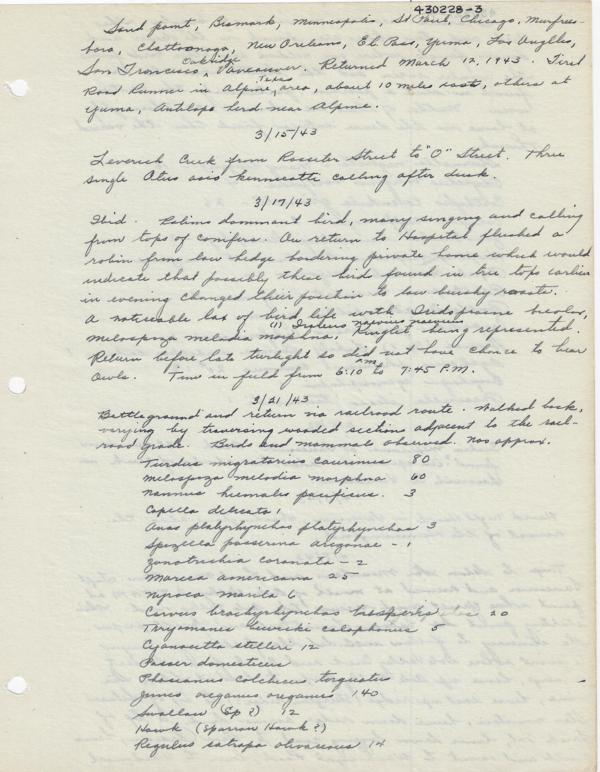 430228-3
Sand point, Bismark, Minneapolis, St Paul, Chicago, Murfrees-
boro, Chattanooga, New Orleans, El Paso, Yuma, Los Angeles,
San Francisco, Oakridge, Vancouver. Returned March 12, 1943. First
Road Runner in Alpine, Texas area, about 10 miles east, others at
Yuma, Antelope herd near Alpine.
3/15/43
Leverich Creek from Rossiter Street to "O" Street. Three
single Otus asio kennicotti calling after dusk.
3/17/43
Ibid. Robins dominant bird, many singing and calling
from tops of conifers. On return to Hospital flushed a
robin from low hedge bordering private home which would
indicate that possibly these bird found in tree tops earlier
in evening changed their position to low bushy roosts.
A noticeable lax of bird life with Iridoprocne bicolor,
(1) Ixoreus naevius
Melospoza melodia morphna, Kinglet being represented.
Return before late twilight so did not have chance to hear
Owls. Time in field from 6:10 PM to 7:45 P.M.
3/21/43
Battleground and return via railroad route. Walked back,
varying by traversing wooded section adjacent to the rail-
road grade. Birds and mammals observed. Nos approx.
Turdus migratorius caurinus 80
Melospoza melodia morphna 60
Nannus hiemalis pacificus. 3
Capella delicata 1
Anas platyrhynchos platyrhynchos 3
Spizella passerina arizonae - 1
Zonotrichia coronata - 2
Mareca americana 25
Nyroca marila 6
Corvus brachyrhynchos hesperis 20
Thryomanes bewicki calophonus 5
Cyanocitta stelleri 12
Passer domesticus
Phasianus colchicus torquatus
Junco oreganus oreganus 140
Swallow (Sp?) 12
Hawk (Sparrow Hawk?)
Regulus satrapa olivaceous 14